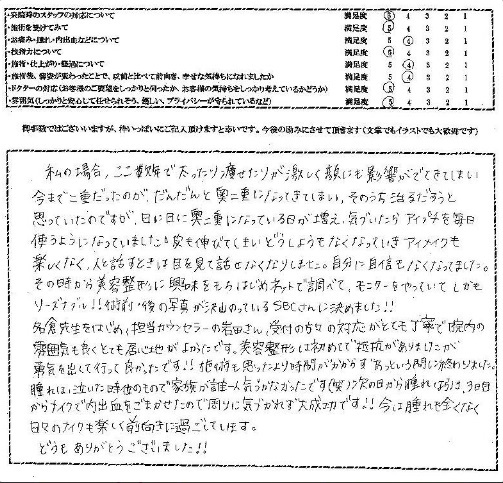 ・来院時のスタッフの対応について 満足度 5 4 3 2 1
・施術を受けてみて 満足度 5 4 3 2 1
・お痛み・腫れ・内出血などについて 満足度 5 4 3 2 1
・技術力について 満足度 5 4 3 2 1
・施術・仕上がり・経過について 満足度 5 4 3 2 1
・施術後、容姿が変わったことで、以前と比べて前向き、幸せな気持ちになれましたか 満足度 5 4 3 2 1
・ドクターの対応(お客様のご要望をしっかりと伺ったか、お客様の気持ちをしっかり考えているかどうか) 満足度 5 4 3 2 1
・雰囲気(しっかりと安心して任せられそう、優しい、プライバシーが守られているなど) 満足度 5 4 3 2 1
御手数ではございいますが、枠いっぱいにご記入頂けますと幸いです。今後の励みにさせて頂きます(文章でもイラストでも大歓迎です)
私の場合、ここ数年で太ったり痩せたりが激しく顔にも影響がでてきてしまい
今まで二重だったのが、だんだんと奥二重になってきてしまい、そのうち治るだろうと
思っていたのですが、日に日に奥二重になっている日が増え、気づいたらアイプチを毎日
使うようになっていました。皮も伸びてしまいどうしようもなくなっていきアイメイクも
楽しくなく、人と話すときは目を見て話せなくなりました。自分に自信もなくなってました。
その時から美容整形に興味をもちはじめネットで調べて、モニターをやっていてしかも
リーズナブル!!術前・術後の写真が沢山のっているSBCさんに決めました!!
名倉先生をはじめ、担当カウンセラーの岩田さん、受付の方々の対応がとても丁寧で院内の
雰囲気も良くとても居心地がよかったです。美容整形は初めてで抵抗がありましたが
勇気を出して行って良かったです!!施術も思ったより時間がかからずあっという間に終わりました。
腫れは、泣いた時位のもので家族が誰一人気づかなかったです(笑)次の日から腫れは引き、3日目
からメイクで内出血をごまかせたので周りに気づかれず大成功です!!今は腫れも全くなく
日々のメイクも楽しく前向きに過ごしています。
どうもありがとうございました!!